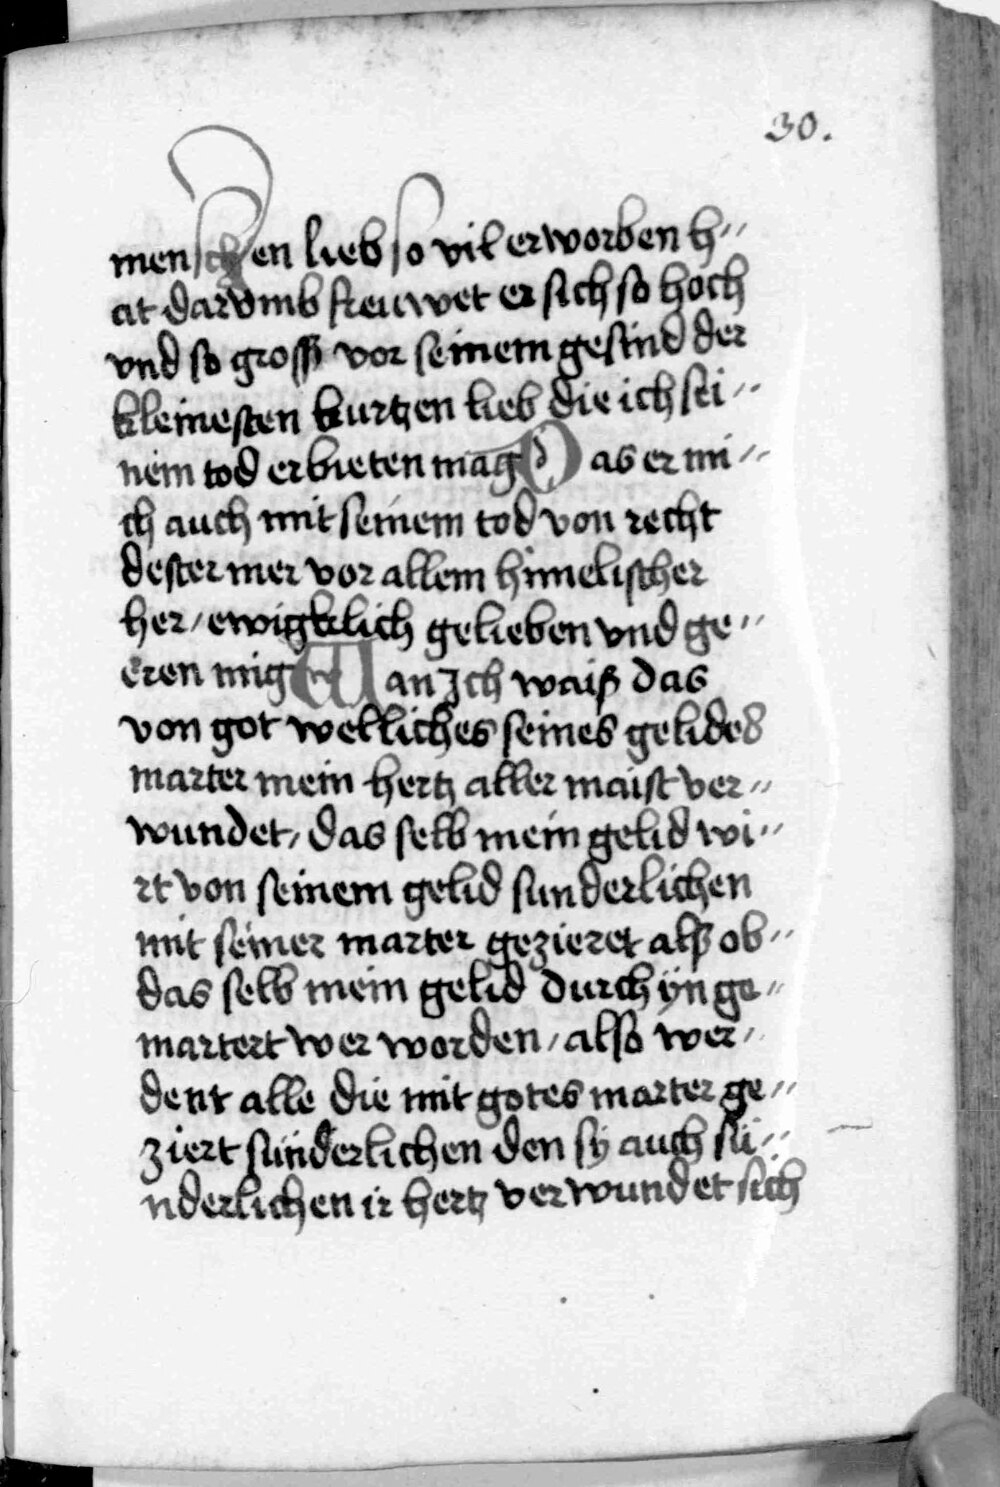 30.
menschen lieb so vil erworben h〃
at darvmb freuwet er sich so hoch
vnd so gross vor seinem gesind der
kleinesten kurtzen lieb die ich sei〃
nem tod erbieten mag Das er mi〃
ch auch mit seinem tod von recht
dester mer vor allem himelischer
her / ewigklich gelieben vnd ge〃
eren mig Wan Jch waiß das
von got welliches seines gelides
marter mein hertz aller maist ver〃
wundet / das selb mein gelid wi〃
rt von seinem gelid sunderlichen
mit seiner marter gezieret alß ob〃
das selb mein gelid durch ÿn ge〃
martert wer worden / also wer〃
dent alle die mit gotes marter ge〃
ziert sünderlichen den sÿ auch sü〃
nderlichen ir hertz verwundet sich